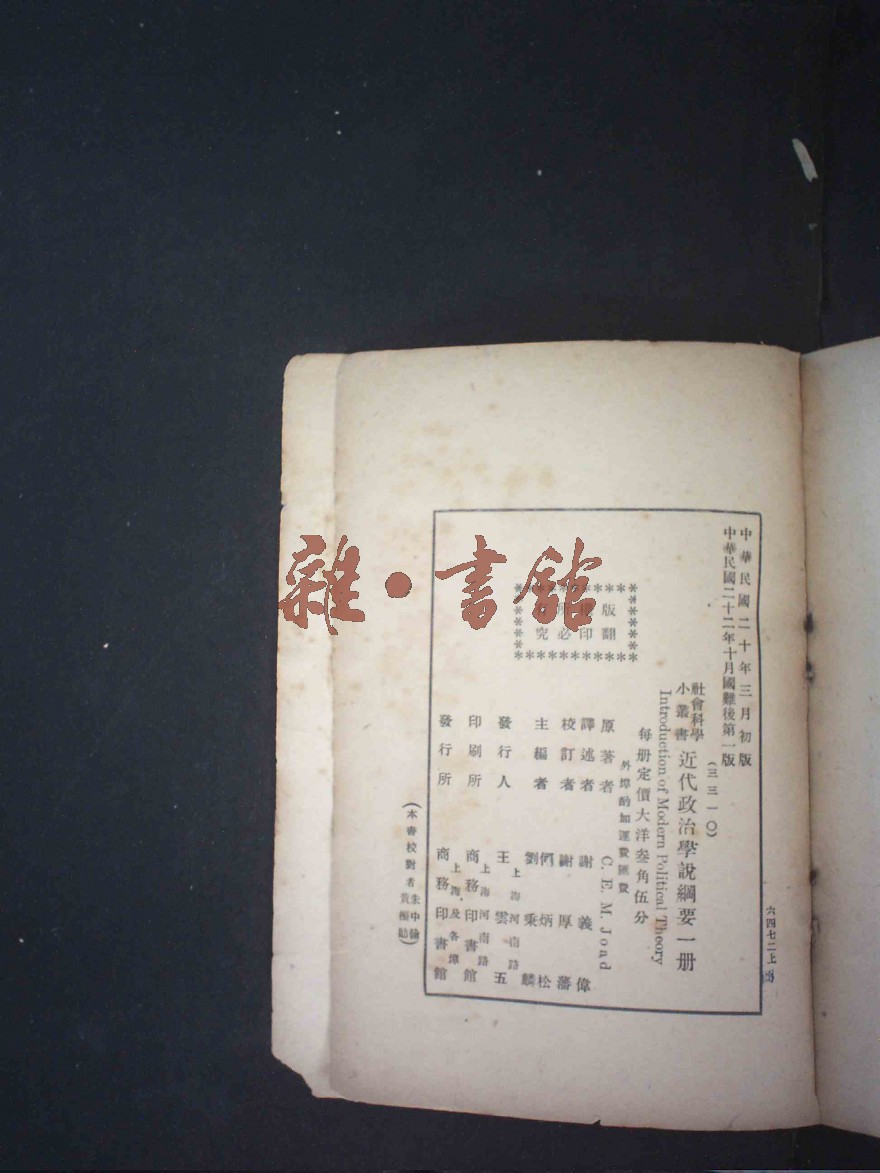 中華民國二十年三月初版
中華民國二十二年十月國難後第一版
(三三一〇)
社會科學小叢書 近代政治學說綱要一册
Introduction of Modern Political Theory
每册定價大洋叁角伍分
外埠酌加運費匯費
版權印必
翻印必究
原著者 C. E. M. Joad
譯述者 謝義偉
校訂者 謝厚藩
主編者 何炳松 劉秉麟
發行人 王雲五 上海河南路
印刷所 商務印書館 上海河南路
發行所 商務印書館 上海及各埠
(本書校對者 朱中翰 黃
六四七二上
雜·書館